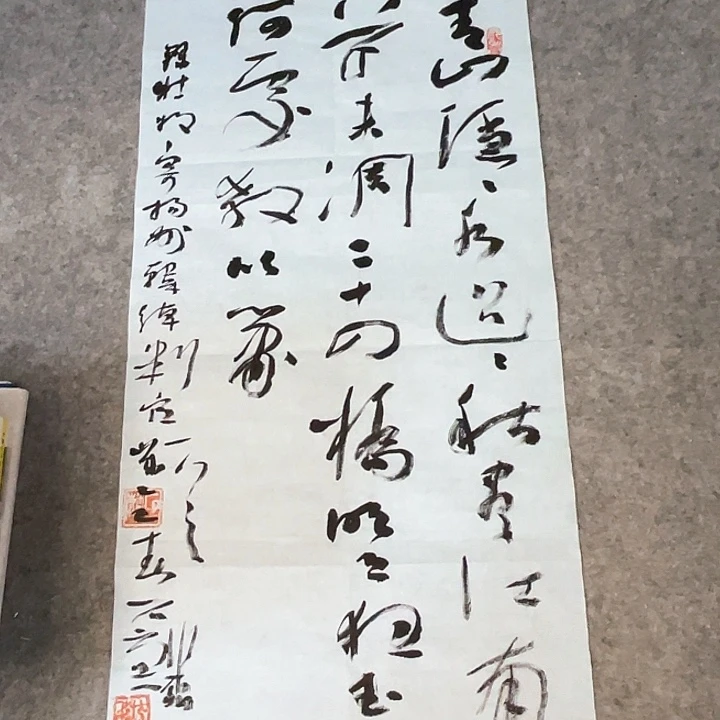 青山隱〻水迢〻秋盡江南
草未凋二十四橋明月夜玉
何處教吹簫
錄杜牧寄揚州韓綽判官